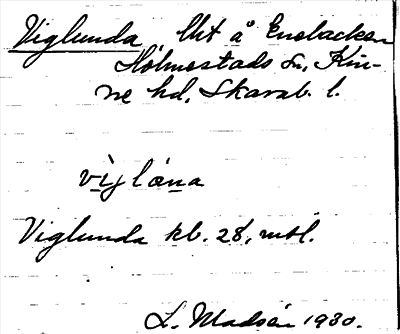 Viglunda lht å Enebacken
Holmestads sn, Kin-
ne hd, Skarab. l.
vìglána
Viglunda kb. 28, mtl.
L. Madsén 1930.